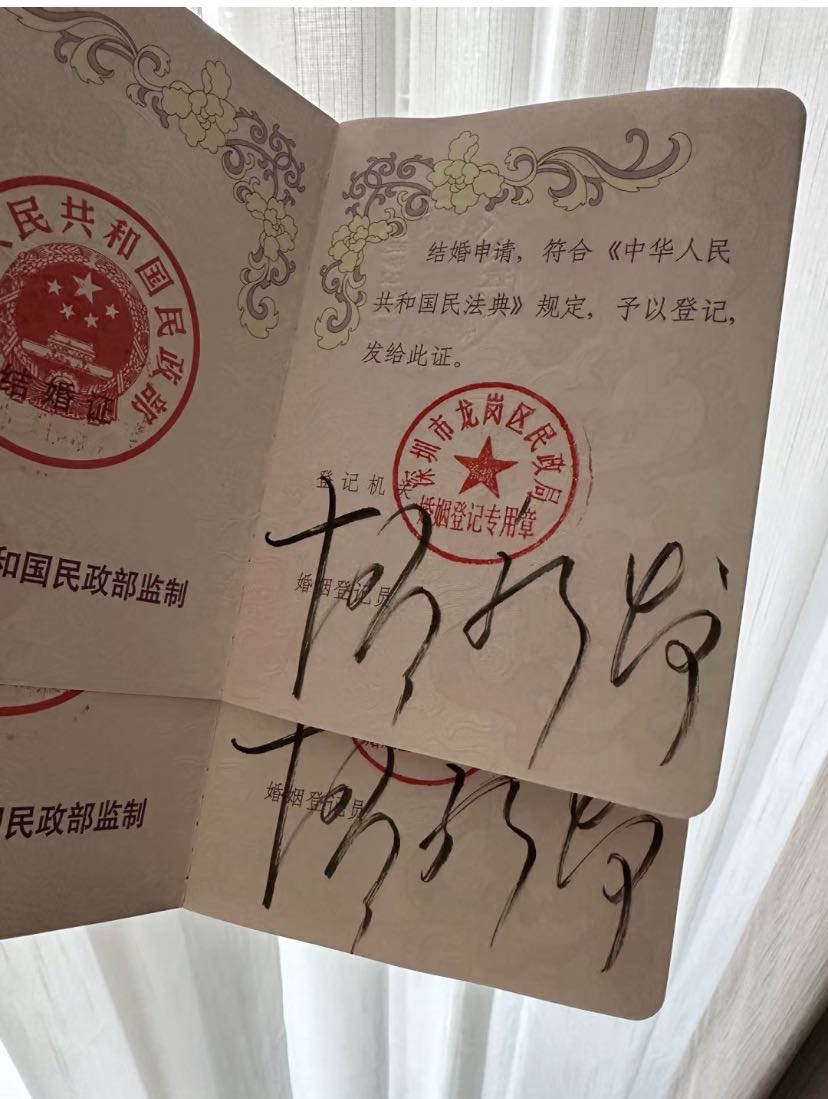 人民共和国民政部
结婚证
和国民政部监制
结婚申请，符合《中华人民
共和国民法典》规定，予以登记，
发给此证。
深圳市龙岗区民政局
婚姻登记专用章
登记机关
婚姻登记员
民政部监制
婚姻登记员